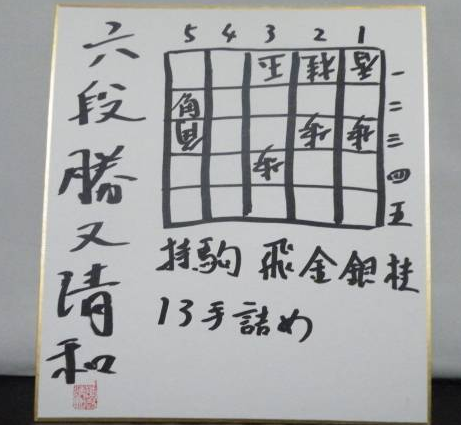 六段 勝又清和
5 4 3 2 1
玉 桂 香 一
角 二
角 歩 歩 三
歩 四
五
持駒 飛金銀桂
13手詰め